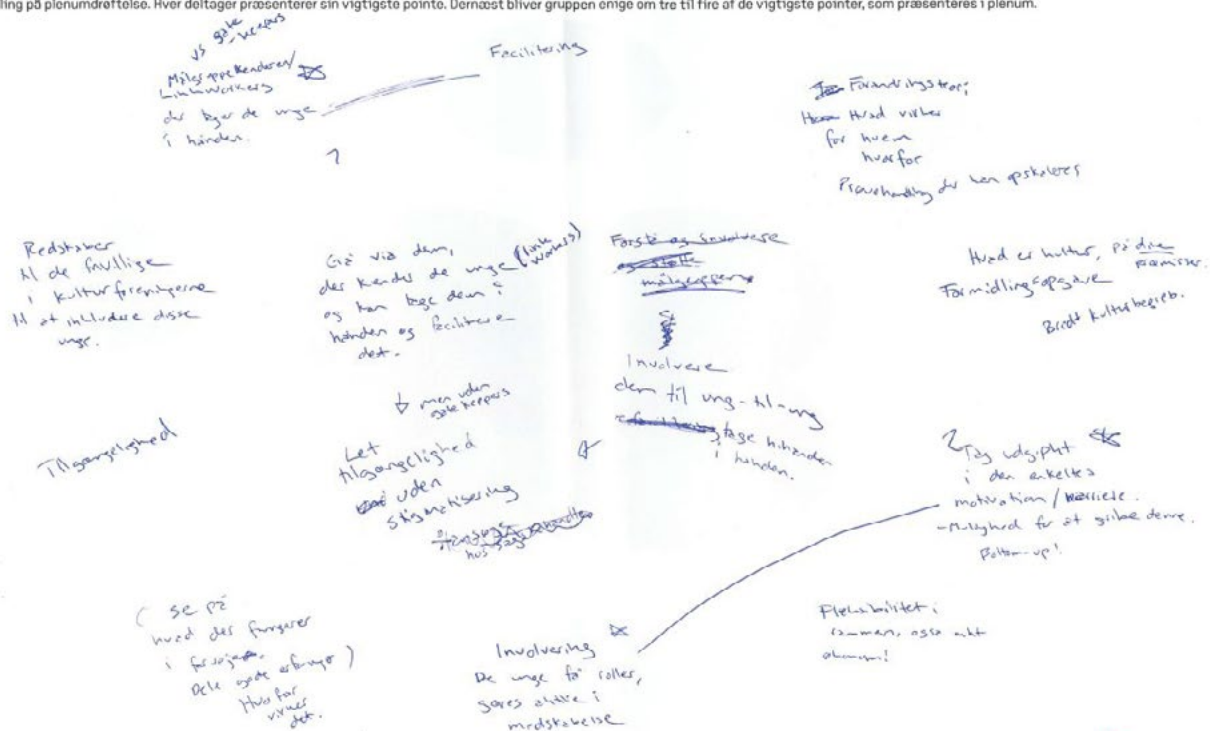 ling på plenumdrøftelse. Hver deltager præsenterer sin vigtigste pointe. Dernæst bliver gruppen enige om tre til fire af de vigtigste pointer, som præsenteres i plenum.
vs gate keepers
Målgruppekendere/
Linkworkers
der tager de unge
i hånden.
?
Facilitering
Forandringsteori
Hvad virker
for hvem
hvorfor
Prøvehandling der kan opskaleres
Redskaber
til de frivillige
i kulturforeningerne
til at inkludere disse
unge.
Gå via dem,
der kender de unge (link workers)
og kan tage dem i
hånden og facilitere
det.
Forstå og involvere
og støtte
målgrupperne
Hvad er kultur, på dine
præmisser.
Formidlingsopgave
Bredt kulturbegreb.
Involvere
dem til ung-til-ung
tage hinanden
i hånden.
men uden
gatekeepers
Let
tilgængelighed
uden
stigmatisering
hos
Tilgængelighed
Tag udgipkt
i den enkeltes
motivation / barriere.
- Mulighed for at gribe denne.
Bottom-up!
( se på
hvad der fungerer
i forvejen.
Dele gode erfaringer)
Hvorfor
virker
det.
Involvering
De unge får roller,
gøres aktive i
medskabelse
Fleksibilitet i
rammen, også